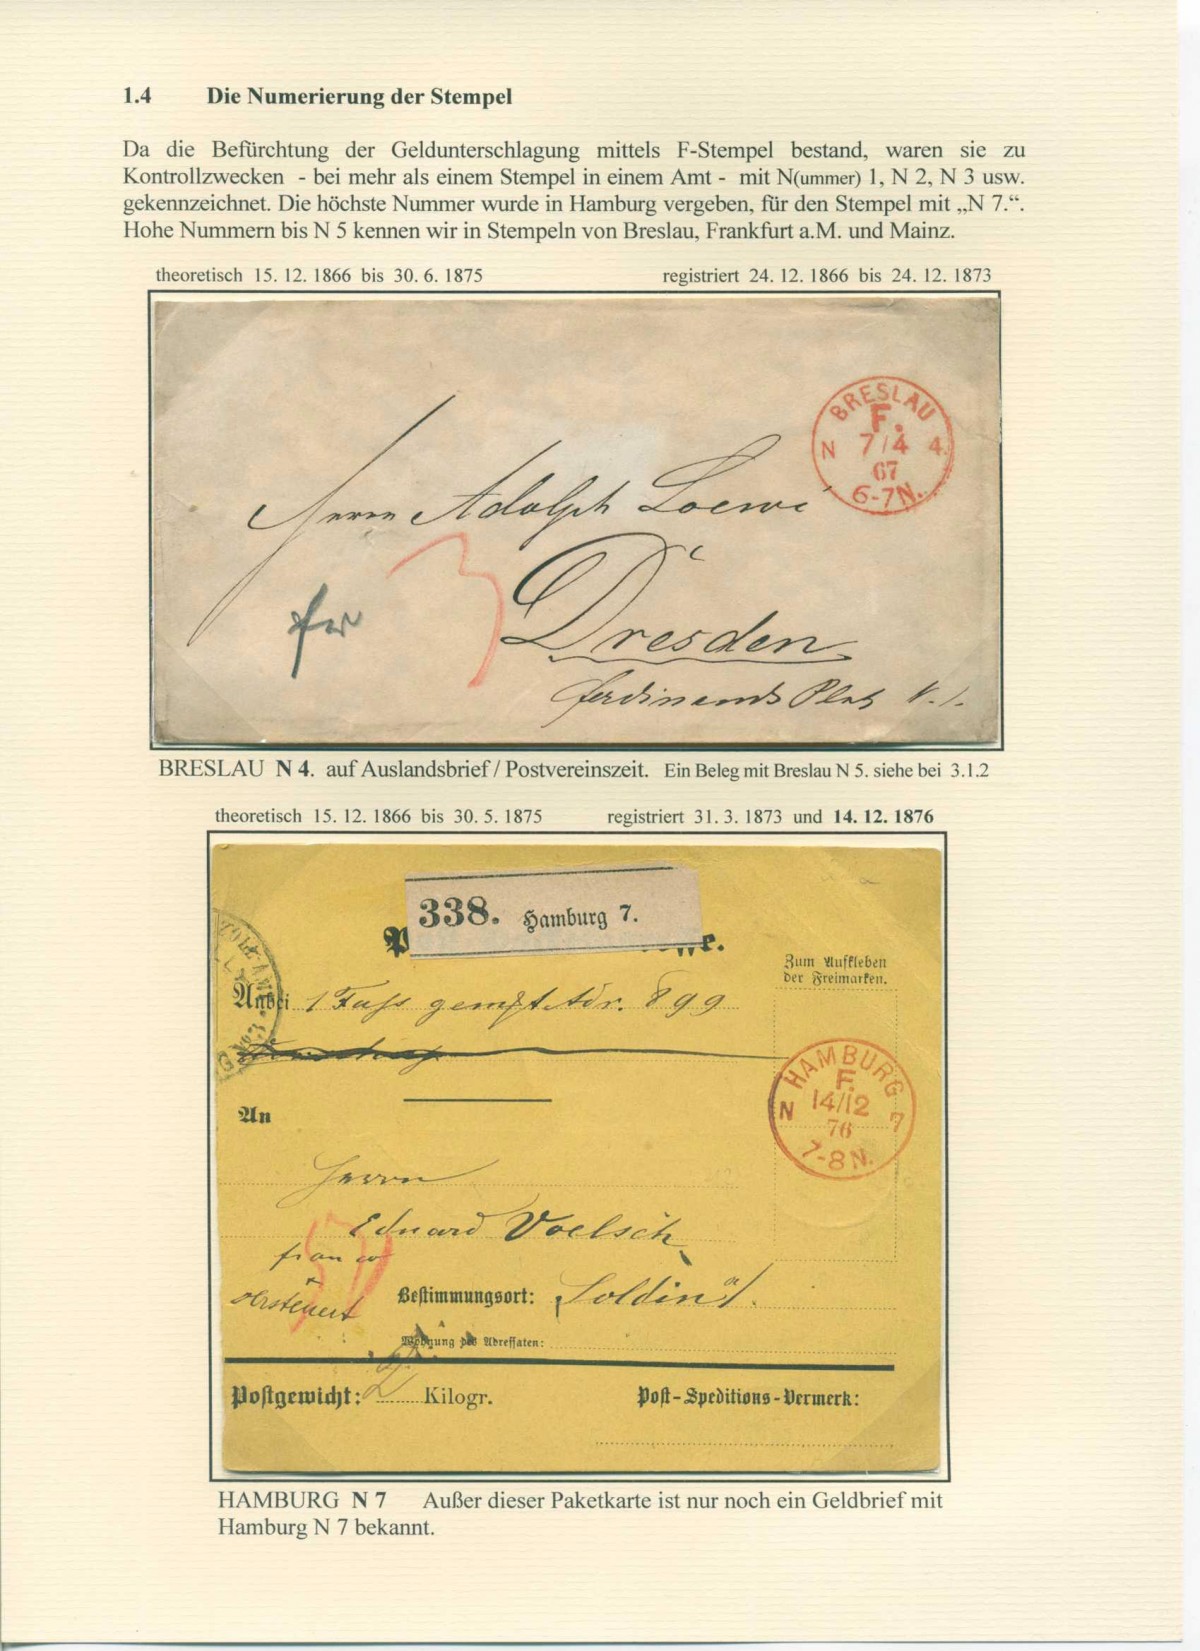 1.4 Die Numerierung der Stempel
Da die Befürchtung der Geldunterschlagung mittels F-Stempel bestand, waren sie zu
Kontrollzwecken - bei mehr als einem Stempel in einem Amt - mit N(ummer) 1, N 2, N 3 usw.
gekennzeichnet. Die höchste Nummer wurde in Hamburg vergeben, für den Stempel mit „N 7.“.
Hohe Nummern bis N 5 kennen wir in Stempeln von Breslau, Frankfurt a.M. und Mainz.
theoretisch 15. 12. 1866 bis 30. 6. 1875 registriert 24. 12. 1866 bis 24. 12. 1873
BRESLAU
F.
N 7/4 4.
67
6-7N.
Herrn Adolph Loewe
3
fr
Dresden
Ferdinands Platz N. 1.
BRESLAU N 4. auf Auslandsbrief / Postvereinszeit. Ein Beleg mit Breslau N 5. siehe bei 3.1.2
theoretisch 15. 12. 1866 bis 30. 5. 1875 registriert 31. 3. 1873 und 14. 12. 1876
338. Hamburg 7.
Zum Aufkleben
der Freimarken.
Anbei 1 Fass gem. Adr. 899
HAMBURG
F.
N 14/12 7
76
7-8N.
An
Herrn
Eduard Voelsch
franco
Bestimmungsort: Soldin
versteuert
Wohnung des Adressaten:
Postgewicht: Kilogr. Post-Speditions-Vermerk:
HAMBURG N 7 Außer dieser Paketkarte ist nur noch ein Geldbrief mit
Hamburg N 7 bekannt.